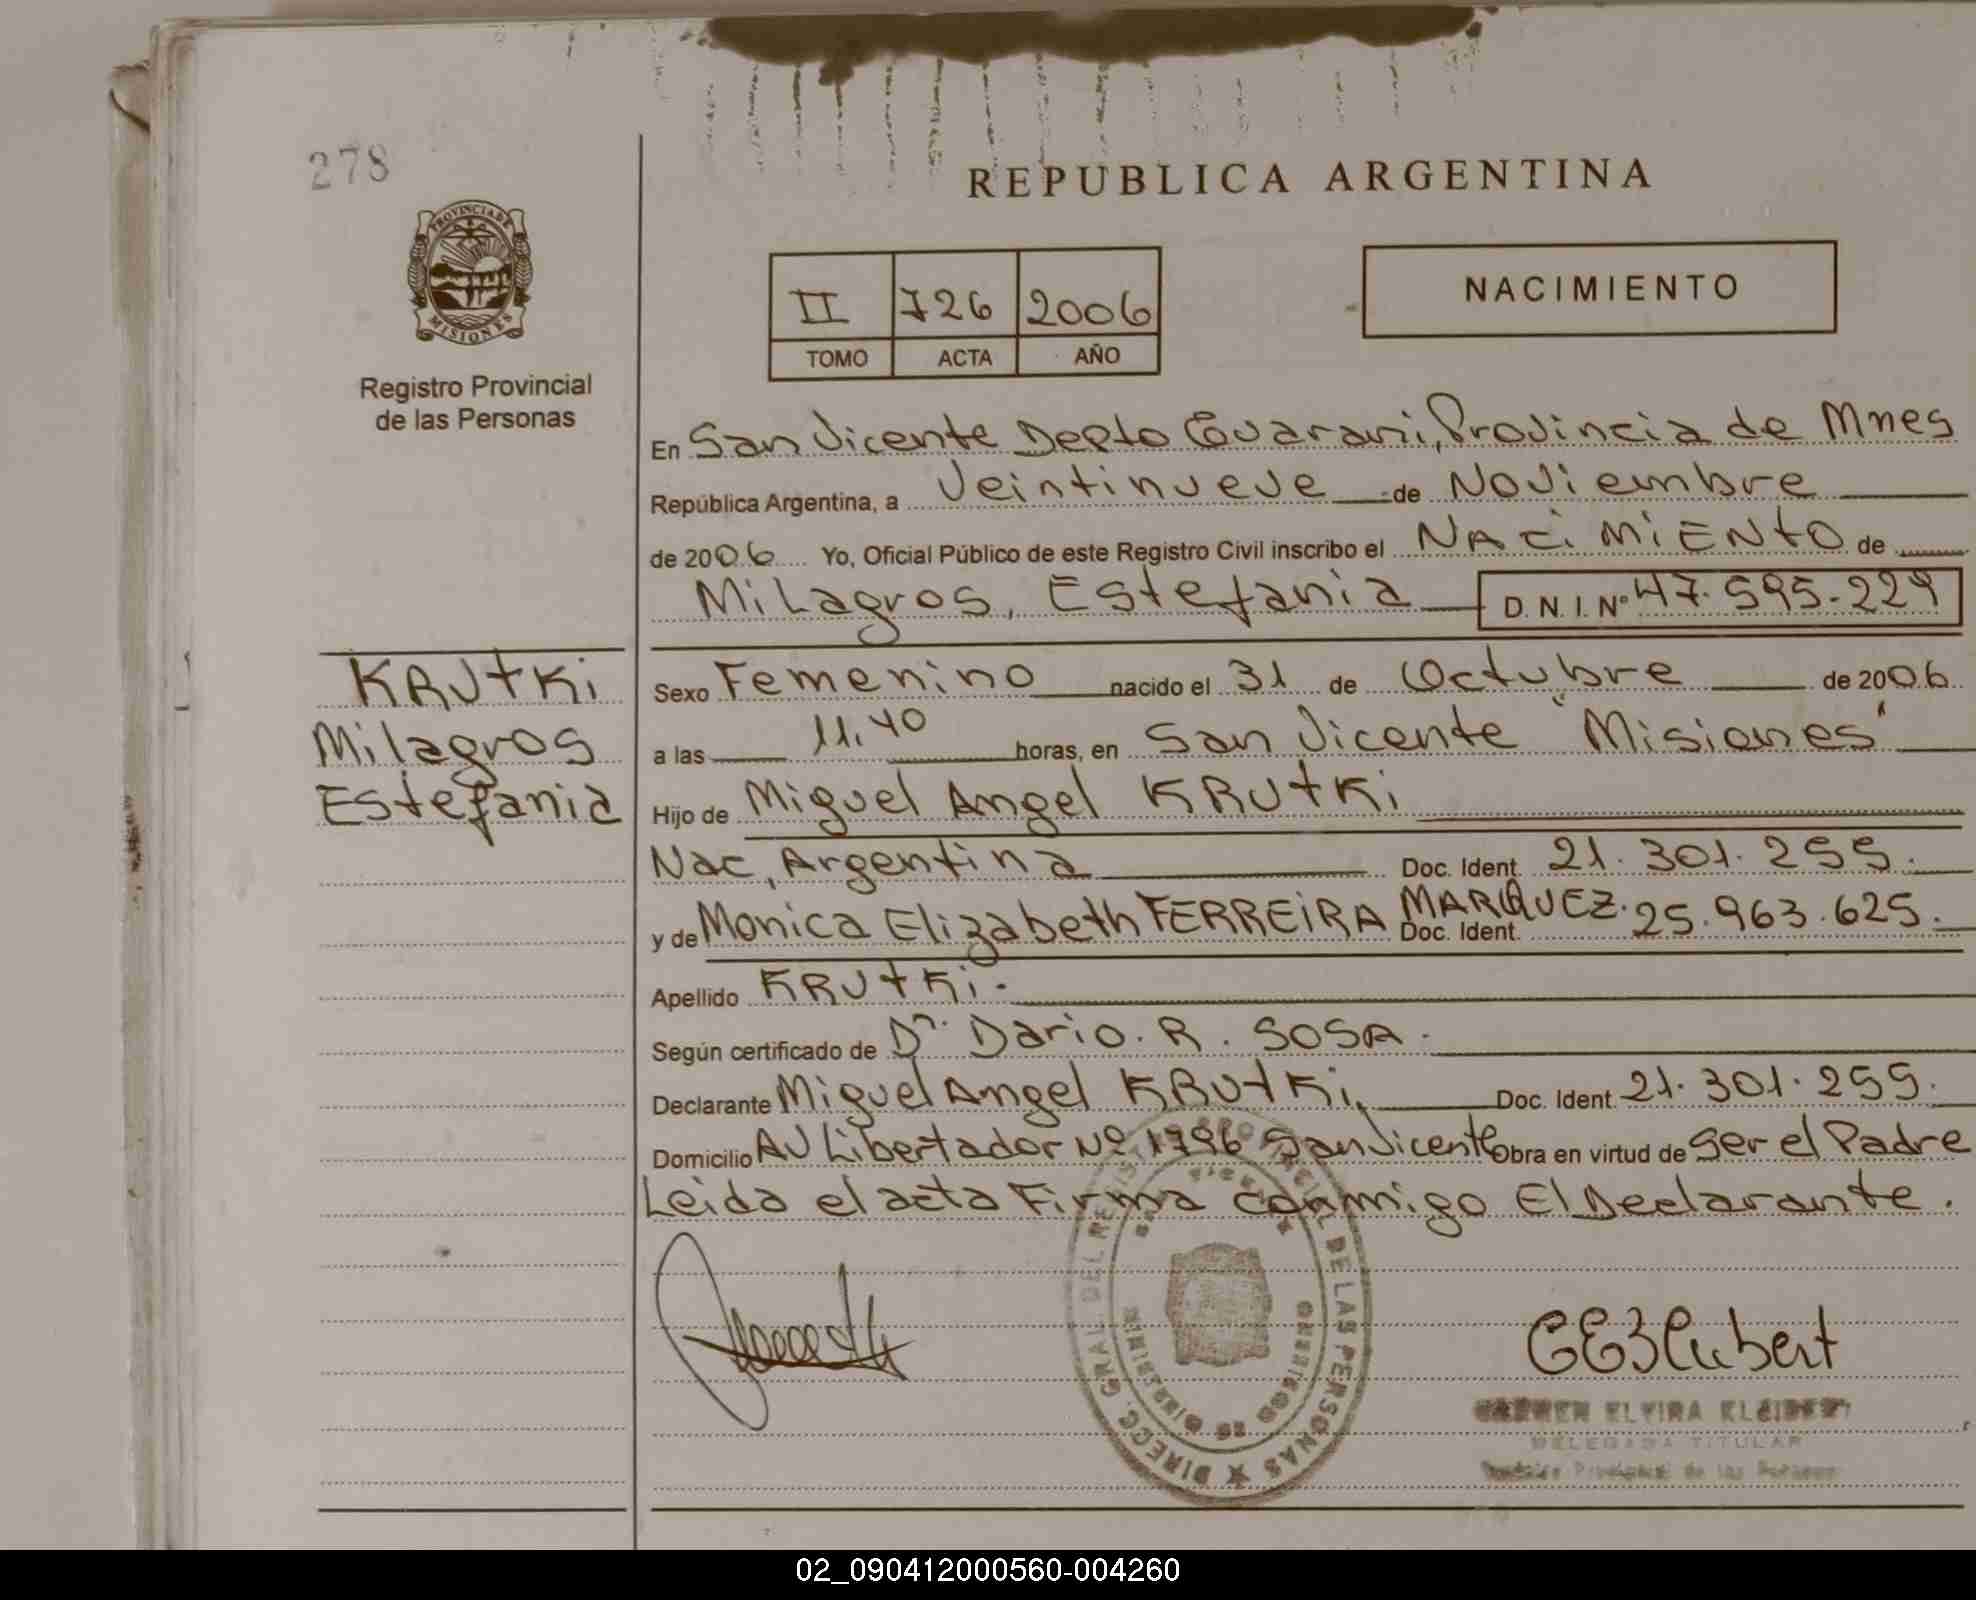 278
PROVINCIA DE
MISIONES
Registro Provincial
de las Personas
REPUBLICA ARGENTINA
II 726 2006
TOMO ACTA AÑO
NACIMIENTO
En San Vicente Depto Guarani, Provincia de Mnes
República Argentina, a Veintinueve de Noviembre
de 2006 Yo, Oficial Público de este Registro Civil inscribo el NACiMiENtO de
Milagros, Estefania D. N. I. Nº 47.595.229
KRUtKi
Milagros
Estefania
Sexo Femenino nacido el 31 de Octubre de 2006
a las 11,40 horas, en San Vicente "Misiones"
Hijo de Miguel Angel KRUtKi
Nac, Argentina Doc. Ident. 21.301.255.
y de Monica Elizabeth FERREiRA MARQUEZ. Doc. Ident. 25.963.625.
Apellido KRUtKi.
Según certificado de Dr. Dario. R. SOSA.
Declarante Miguel Angel KRUtKi, Doc. Ident. 21.301.255.
Domicilio AV Libertador Nº 1796 San Vicente Obra en virtud de Ser el Padre
Leida el acta Firma conmigo El Declarante.
DIRECC. GRAL. DEL REGISTRO PROVINCIAL DE LAS PERSONAS
CARMEN ELVIRA
DELEGADA TITULAR
Provincial de las Personas
02_090412000560-004260